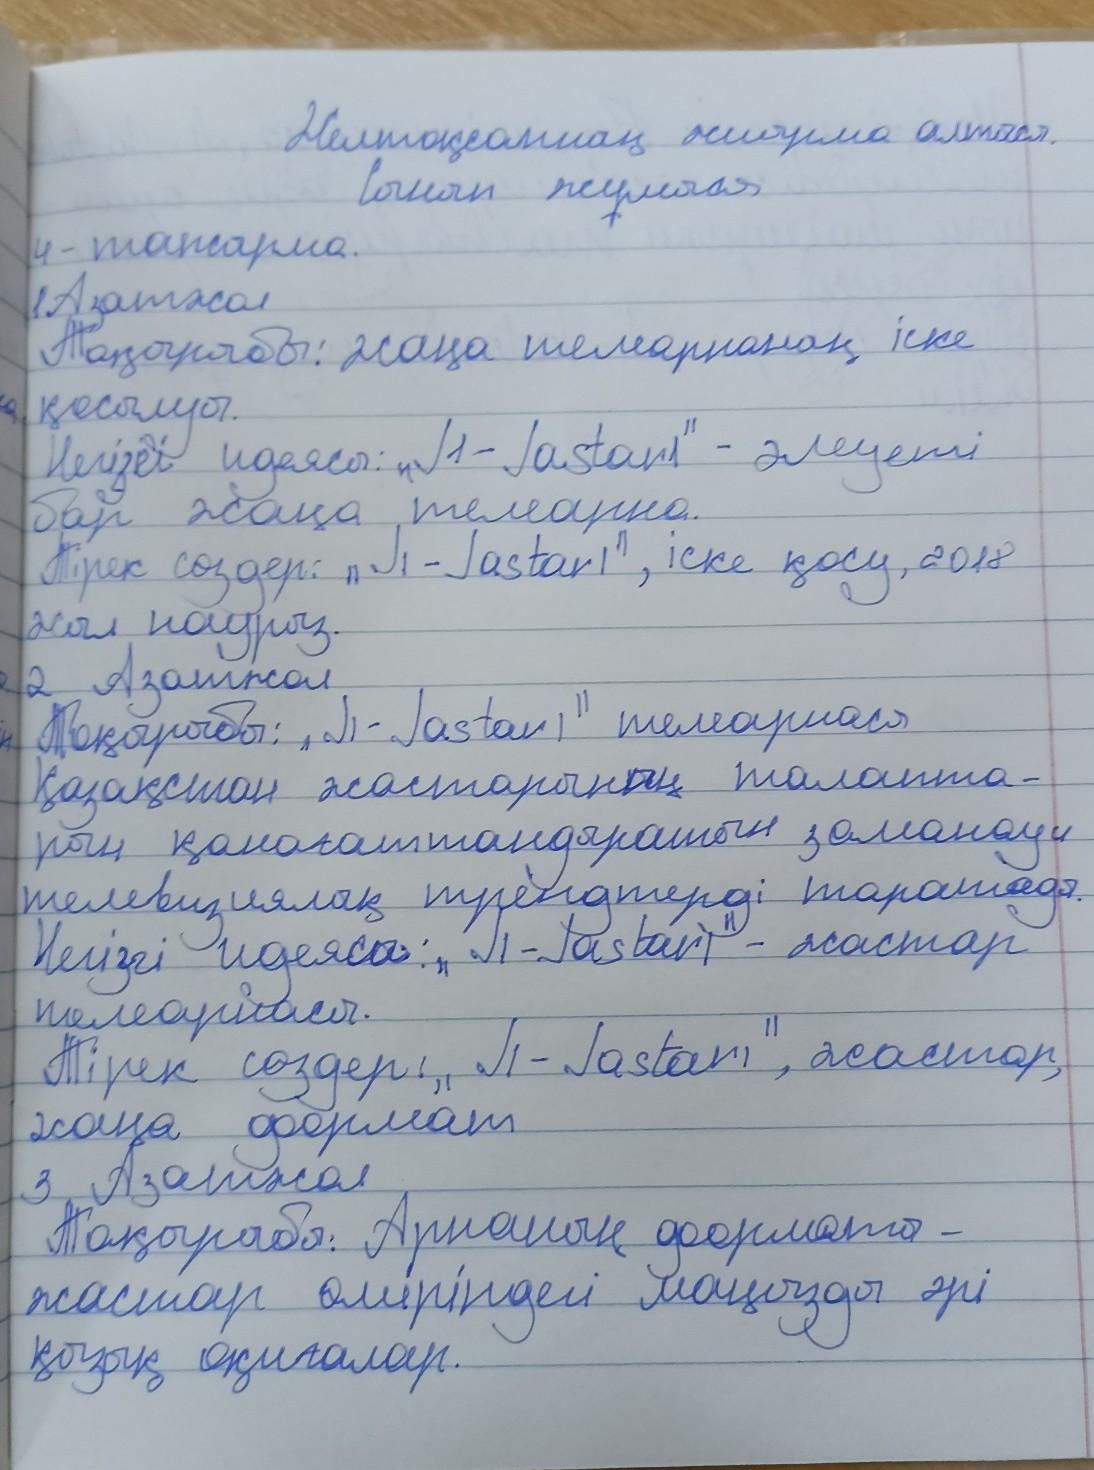 Желтоқсанның жиырма алтысы.
Сынып жұмысы
4-тапсырма.
1 Азатжол
Тақырыбы: жаңа телеарнаның іске
қосылуы.
Негізгі идеясы: „J1-Jastari" - әлеуеті
бар жаңа телеарна.
Тірек сөздер: „J1-Jastari", іске қосу, 2018
жыл наурыз.
2 Азатжол
Тақырыбы: „J1-Jastari" телеарнасы
Қазақстан жастарының талапта-
рын қанағаттандыратын заманауи
телевизиялық трендтерді таратады.
Негізгі идеясы: „J1-Jastari" - жастар
телеарнасы.
Тірек сөздер: „J1-Jastari", жастар,
жаңа формат
3 Азатжол
Тақырыбы: Арнаның форматы -
жастар өміріндегі маңызды әрі
қызық оқиғалар.